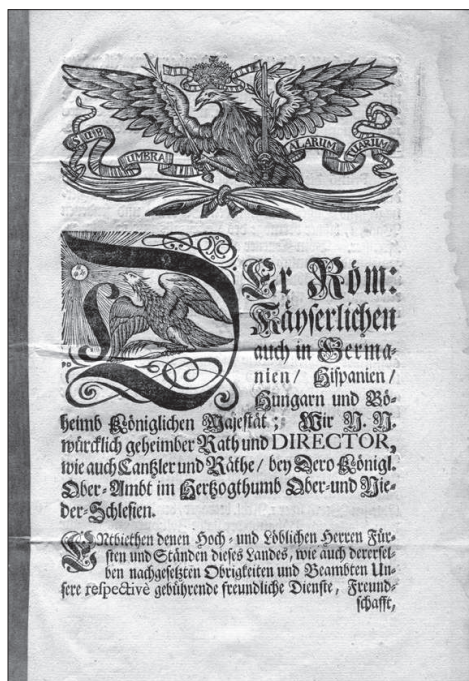 SUB UMBRA ALARUM TUARUM
DEr Röm:
Käyserlichen
auch in Germa-
nien/ Hispanien/
Hungarn und Bö-
heimb Königlichen Majestät; Wir N. N.
würcklich geheimber Rath und DIRECTOR,
wie auch Cantzler und Räthe/ bey Dero Königl.
Ober-Ambt im Hertzogthumb Ober-und Nie-
der-Schlesien.
ENtbiethen denen Hoch- und Löblichen Herren Für-
sten und Ständen dieses Landes, wie auch derersel-
ben nachgesetzten Obrigkeiten und Beambten Un-
sere respectivè gebührende freundliche Dienste, Freund-
schafft,